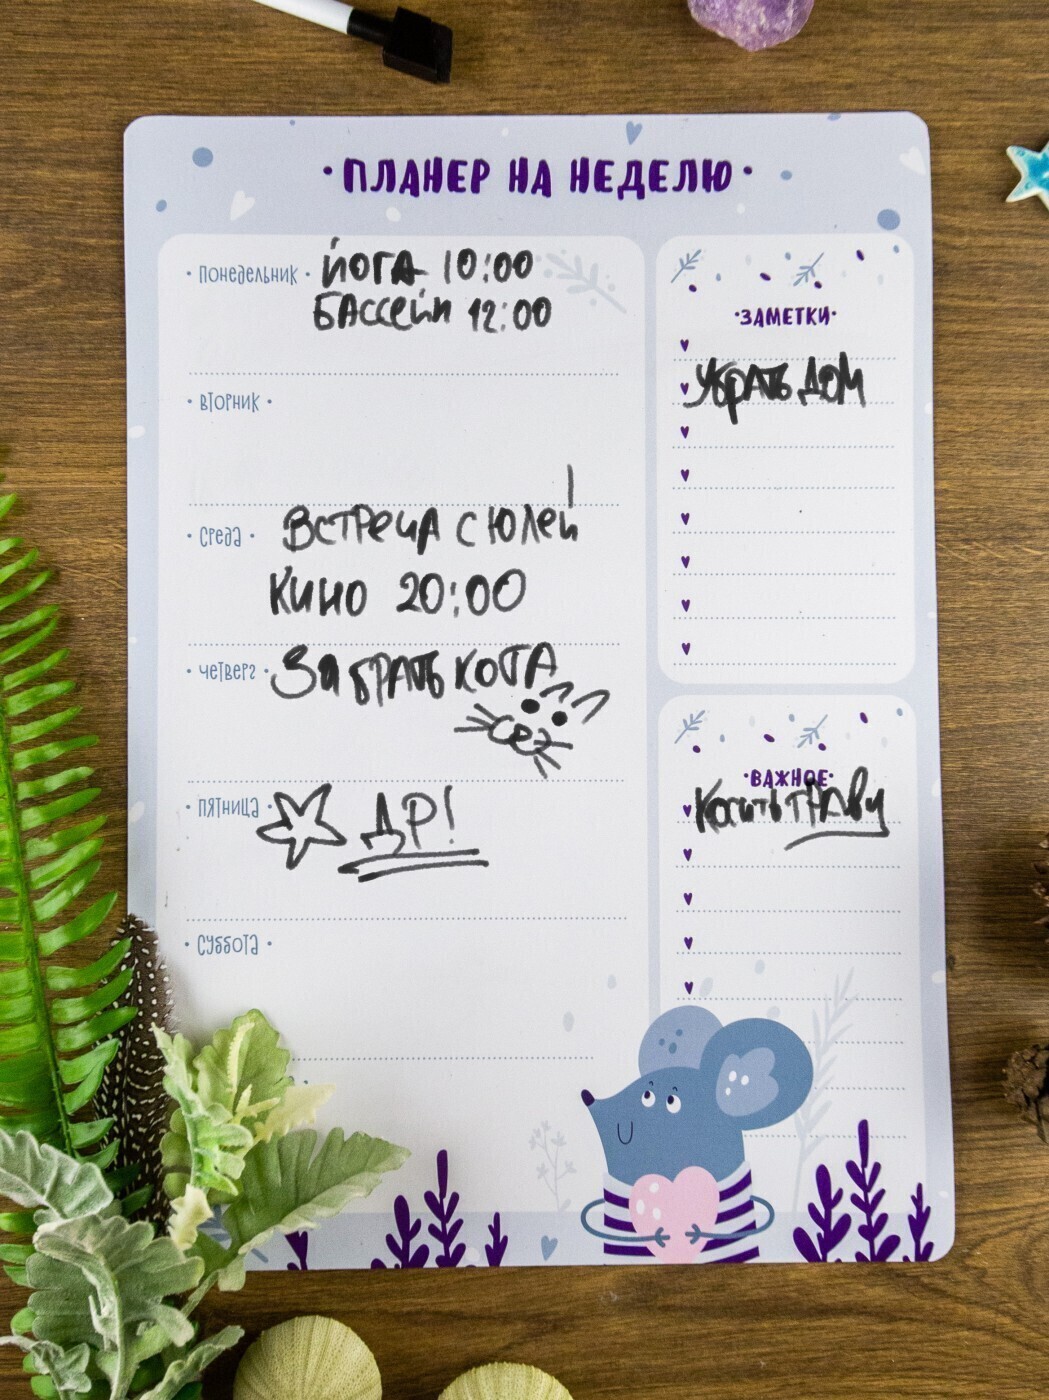 • ПЛАНЕР НА НЕДЕЛЮ •
• ПОНЕДЕЛЬНИК • ЙОГА 10:00
БАССЕЙН 12:00
• ВТОРНИК •
• СРЕДА • ВСТРЕЧА С ЮЛЕЙ
КИНО 20:00
• ЧЕТВЕРГ • ЗАБРАТЬ КОТА
• ПЯТНИЦА • ДР!
• СУББОТА •
• ЗАМЕТКИ •
УБРАТЬ ДОМ
• ВАЖНОЕ •
КОСИТЬ ТРАВУ